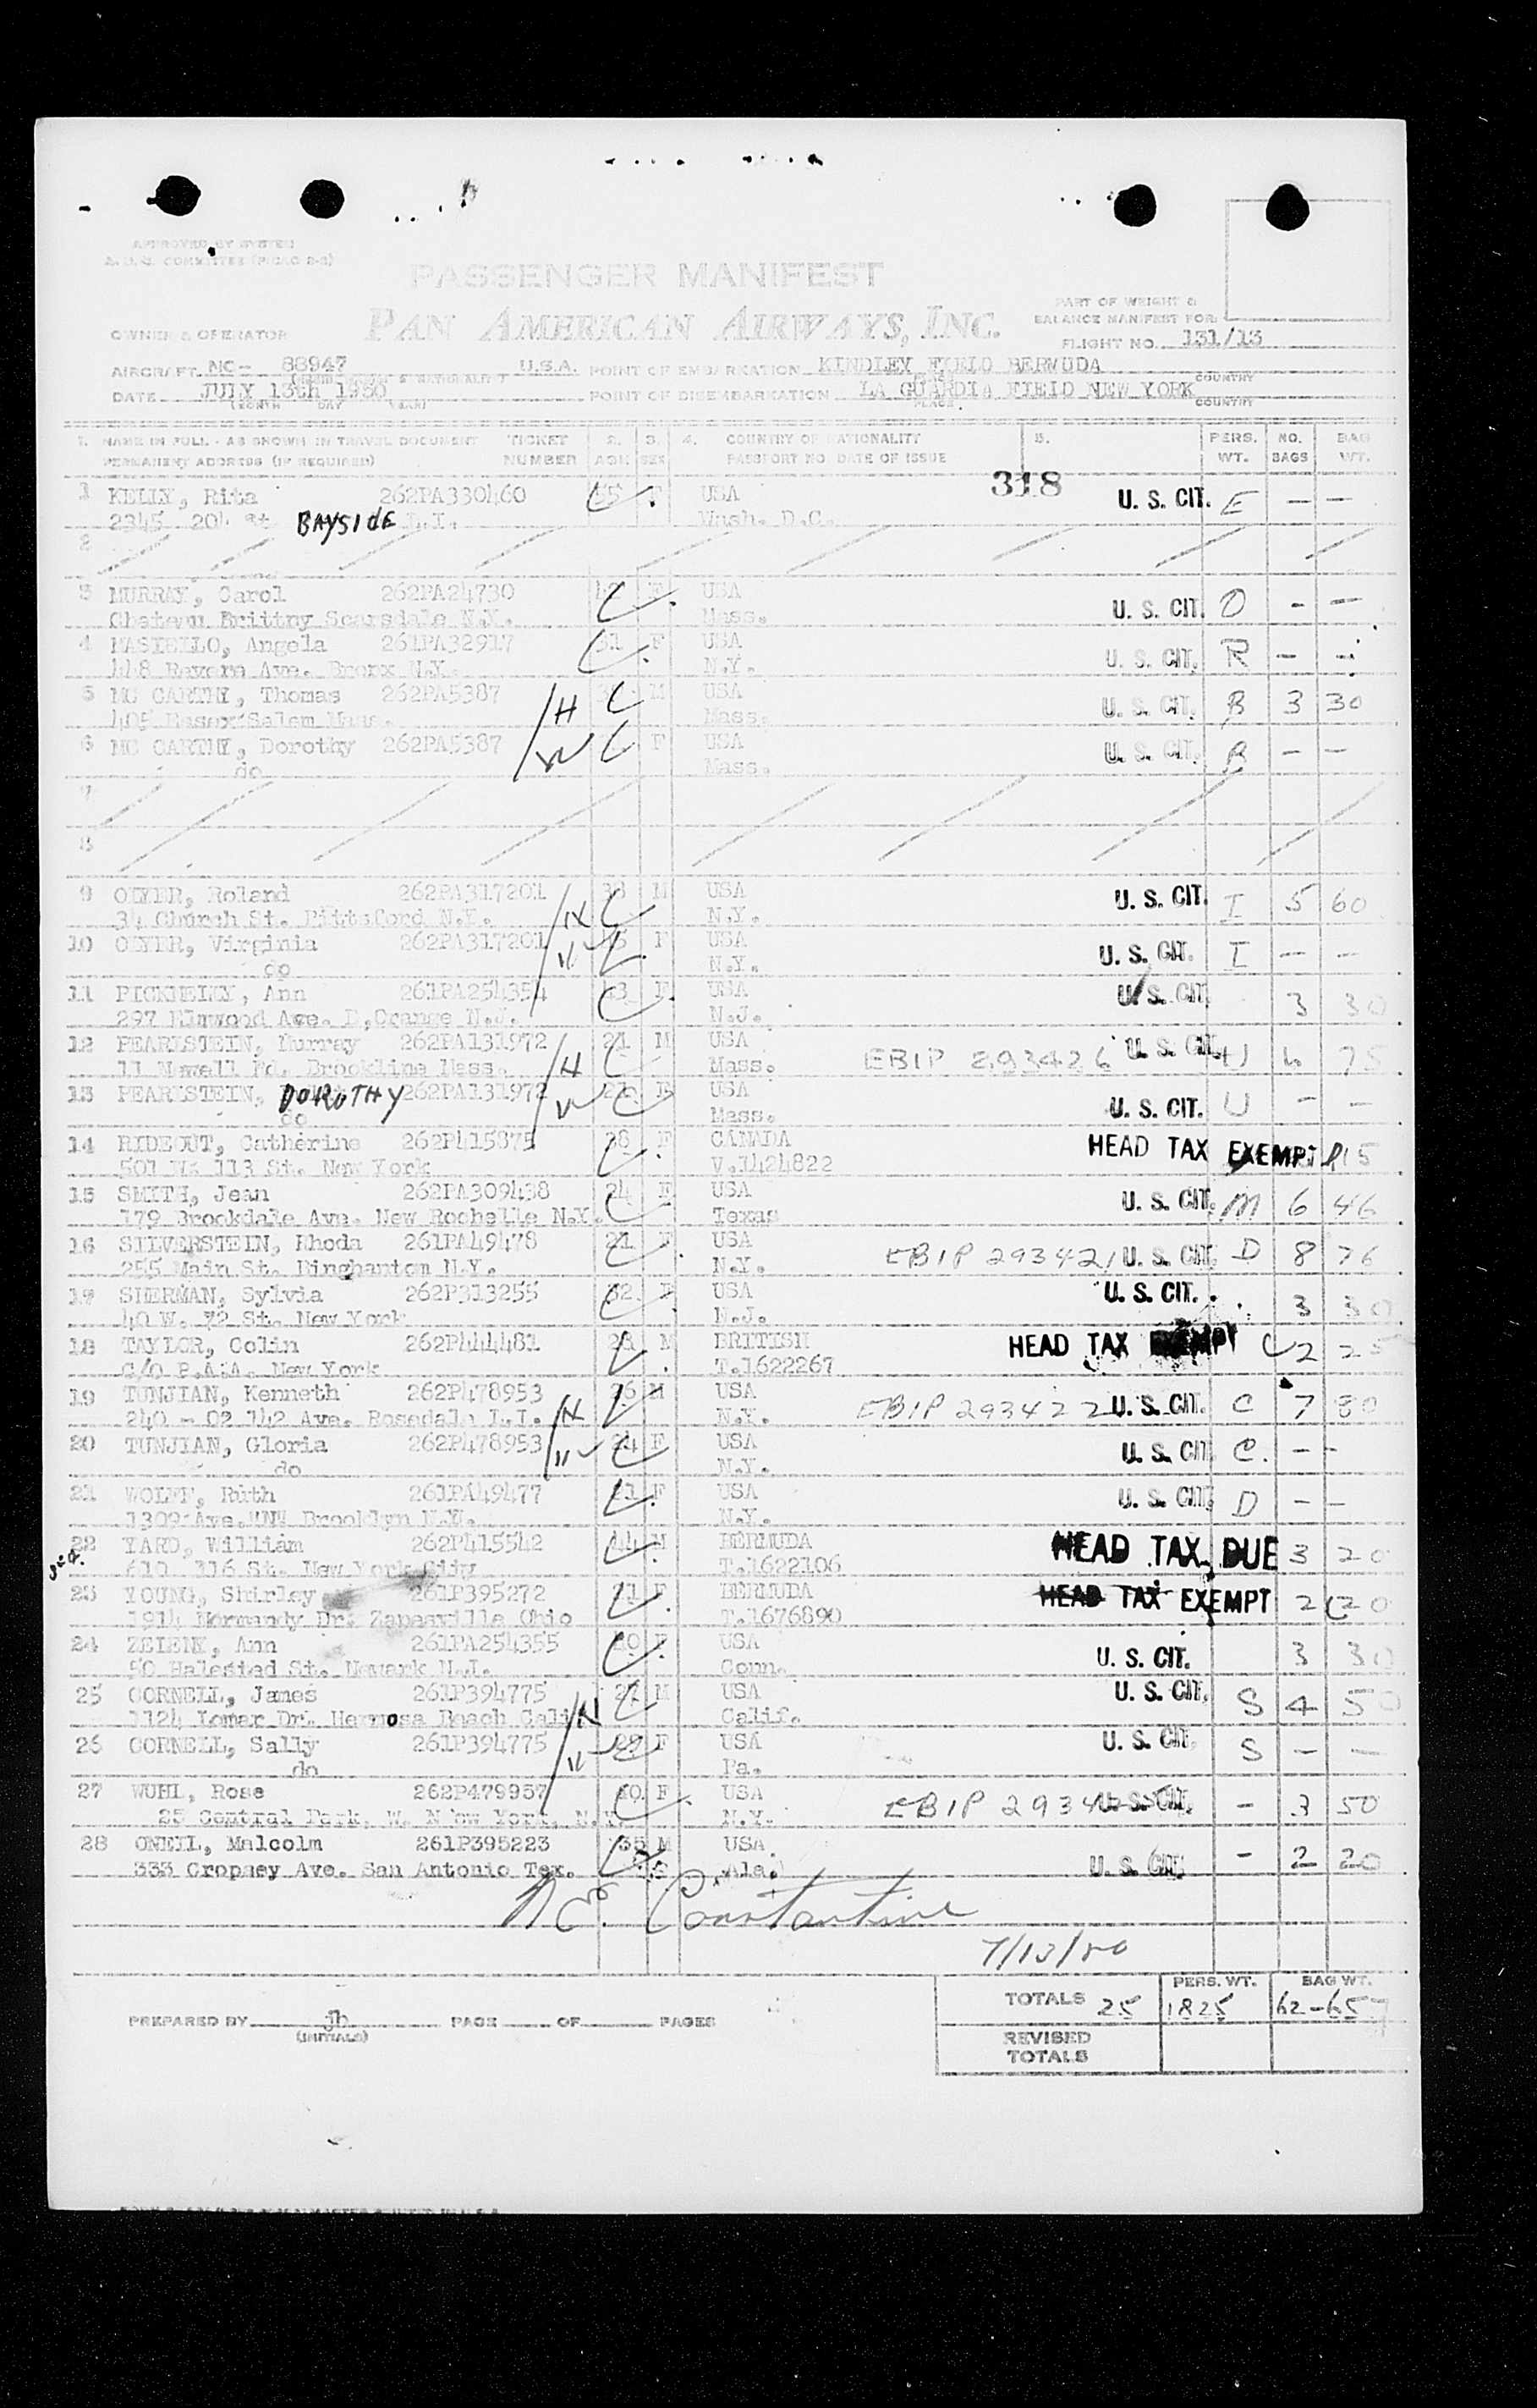 APPROVED BY SYSTEM
COMMITTEE (PICAO 2-3)
PASSENGER MANIFEST
PAN AMERICAN AIRWAYS, INC.
PART OF WEIGHT &
BALANCE MANIFEST FOR:
OWNER & OPERATOR
FLIGHT NO. 131/13
AIRCRAFT NC- 88947 U.S.A. POINT OF EMBARKATION KINDLEY FIELD BERMUDA
DATE JULY 13th 1950 POINT OF DISEMBARKATION LA GUARDIA FIELD NEW YORK
(MONTH DAY YEAR) PLACE COUNTRY
1. NAME IN FULL - AS SHOWN IN TRAVEL DOCUMENT TICKET 2. 3. 4. COUNTRY OF NATIONALITY 5. PERS. NO. BAG
PERMANENT ADDRESS (IF REQUIRED) NUMBER AGE SEX PASSPORT NO DATE OF ISSUE WT. BAGS WT.
318
1 KELLY, Rita 262PA330460 55 F USA U. S. CIT. E — —
2345 204 St BAYSIDE L.I. Wash. D.C.
2
3 MURRAY, Carol 262PA24730 F USA U. S. CIT. O - —
Chateau Brittny Scarsdale N.Y. Mass.
4 MASIELLO, Angela 261PA32917 31 F USA U. S. CIT. R — —
448 Revere Ave. Bronx N.Y. N.Y.
5 MC CARTHY, Thomas 262PA5387 H M USA U. S. CIT. B 3 30
405 Essex Salem Mass. Mass.
6 MC CARTHY, Dorothy 262PA5387 W F USA U. S. CIT. B — —
do Mass.
7
8
9 OLYER, Roland 262PA317201 H 38 M USA U. S. CIT. I 5 60
34 Church St. Pittsford N.Y. N.Y.
10 OLYER, Virginia 262PA317201 W F USA U. S. CIT. I — —
do N.Y.
11 PICKNELLY, Ann 261PA254354 43 F USA U. S. CIT. 3 30
297 Elmwood Ave. E.Orange N.J. N.J.
12 PEARLSTEIN, Murray 262PA131972 H 21 M USA EBIP 293426 U. S. CIT. U 6 75
11 Newell Rd. Brookline Mass. Mass.
13 PEARLSTEIN, DOROTHY 262PA131972 W 21 F USA U. S. CIT. U — —
do Mass.
14 RIDEOUT, Catherine 262P415875 38 F CANADA HEAD TAX EXEMPT 15
501 W. 113 St. New York V.1424822
15 SMITH, Jean 262PA309438 24 F USA U. S. CIT. M 6 46
179 Brookdale Ave. New Rochelle N.Y. Texas
16 SILVERSTEIN, Rhoda 261PA49478 21 F USA EBIP 293421 U. S. CIT. D 8 76
255 Main St. Binghamton N.Y. N.Y.
17 SHERMAN, Sylvia 262P313255 32 F USA U. S. CIT. 3 30
40 W. 72 St. New York N.J.
18 TAYLOR, Colin 262P444481 28 M BRITISH HEAD TAX EXEMPT 2 25
C/O P.A.A. New York T.1622267
19 TUNJIAN, Kenneth 262P478953 H 26 M USA EBIP 293422 U. S. CIT. C 7 80
240 - 02 142 Ave. Rosedale L.I. N.Y.
20 TUNJIAN, Gloria 262P478953 W 24 F USA U. S. CIT. C. — —
do N.Y.
21 WOLFF, Ruth 261PA49477 21 F USA U. S. CIT. D — —
1309 Ave. "N" Brooklyn N.Y. N.Y.
22 YARD, William 262P415542 44 M BERMUDA HEAD TAX DUE 3 20
610 116 St. New York City T.1622106
23 YOUNG, Shirley 261P395272 21 F BERMUDA HEAD TAX EXEMPT 2 20
1914 Normandy Dr. Zanesville Ohio T.1676890
24 ZELENK, Ann 261PA254355 40 F USA U. S. CIT. 3 30
50 Halested St. Newark N.J. Conn.
25 CORNELL, James 261P394775 H 27 M USA U. S. CIT. S 4 50
1124 Lomar Dr. Hermosa Beach Calif Calif.
26 CORNELL, Sally 261P394775 W 29 F USA U. S. CIT. S — —
do Pa.
27 WUHL, Rose 262P479957 40 F USA EBIP 2934 U. S. CIT. - 3 50
25 Central Park, W. New York, N.Y. N.Y.
28 ONEIL, Malcolm 261P395223 35 M USA U. S. CIT. - 2 20
333 Cropsey Ave. San Antonio Tex. Ala.
Constantine
7/13/50
PERS. WT. BAG WT.
TOTALS 25 1825 62-657
PREPARED BY jb PAGE OF PAGES
(INITIALS)
REVISED
TOTALS